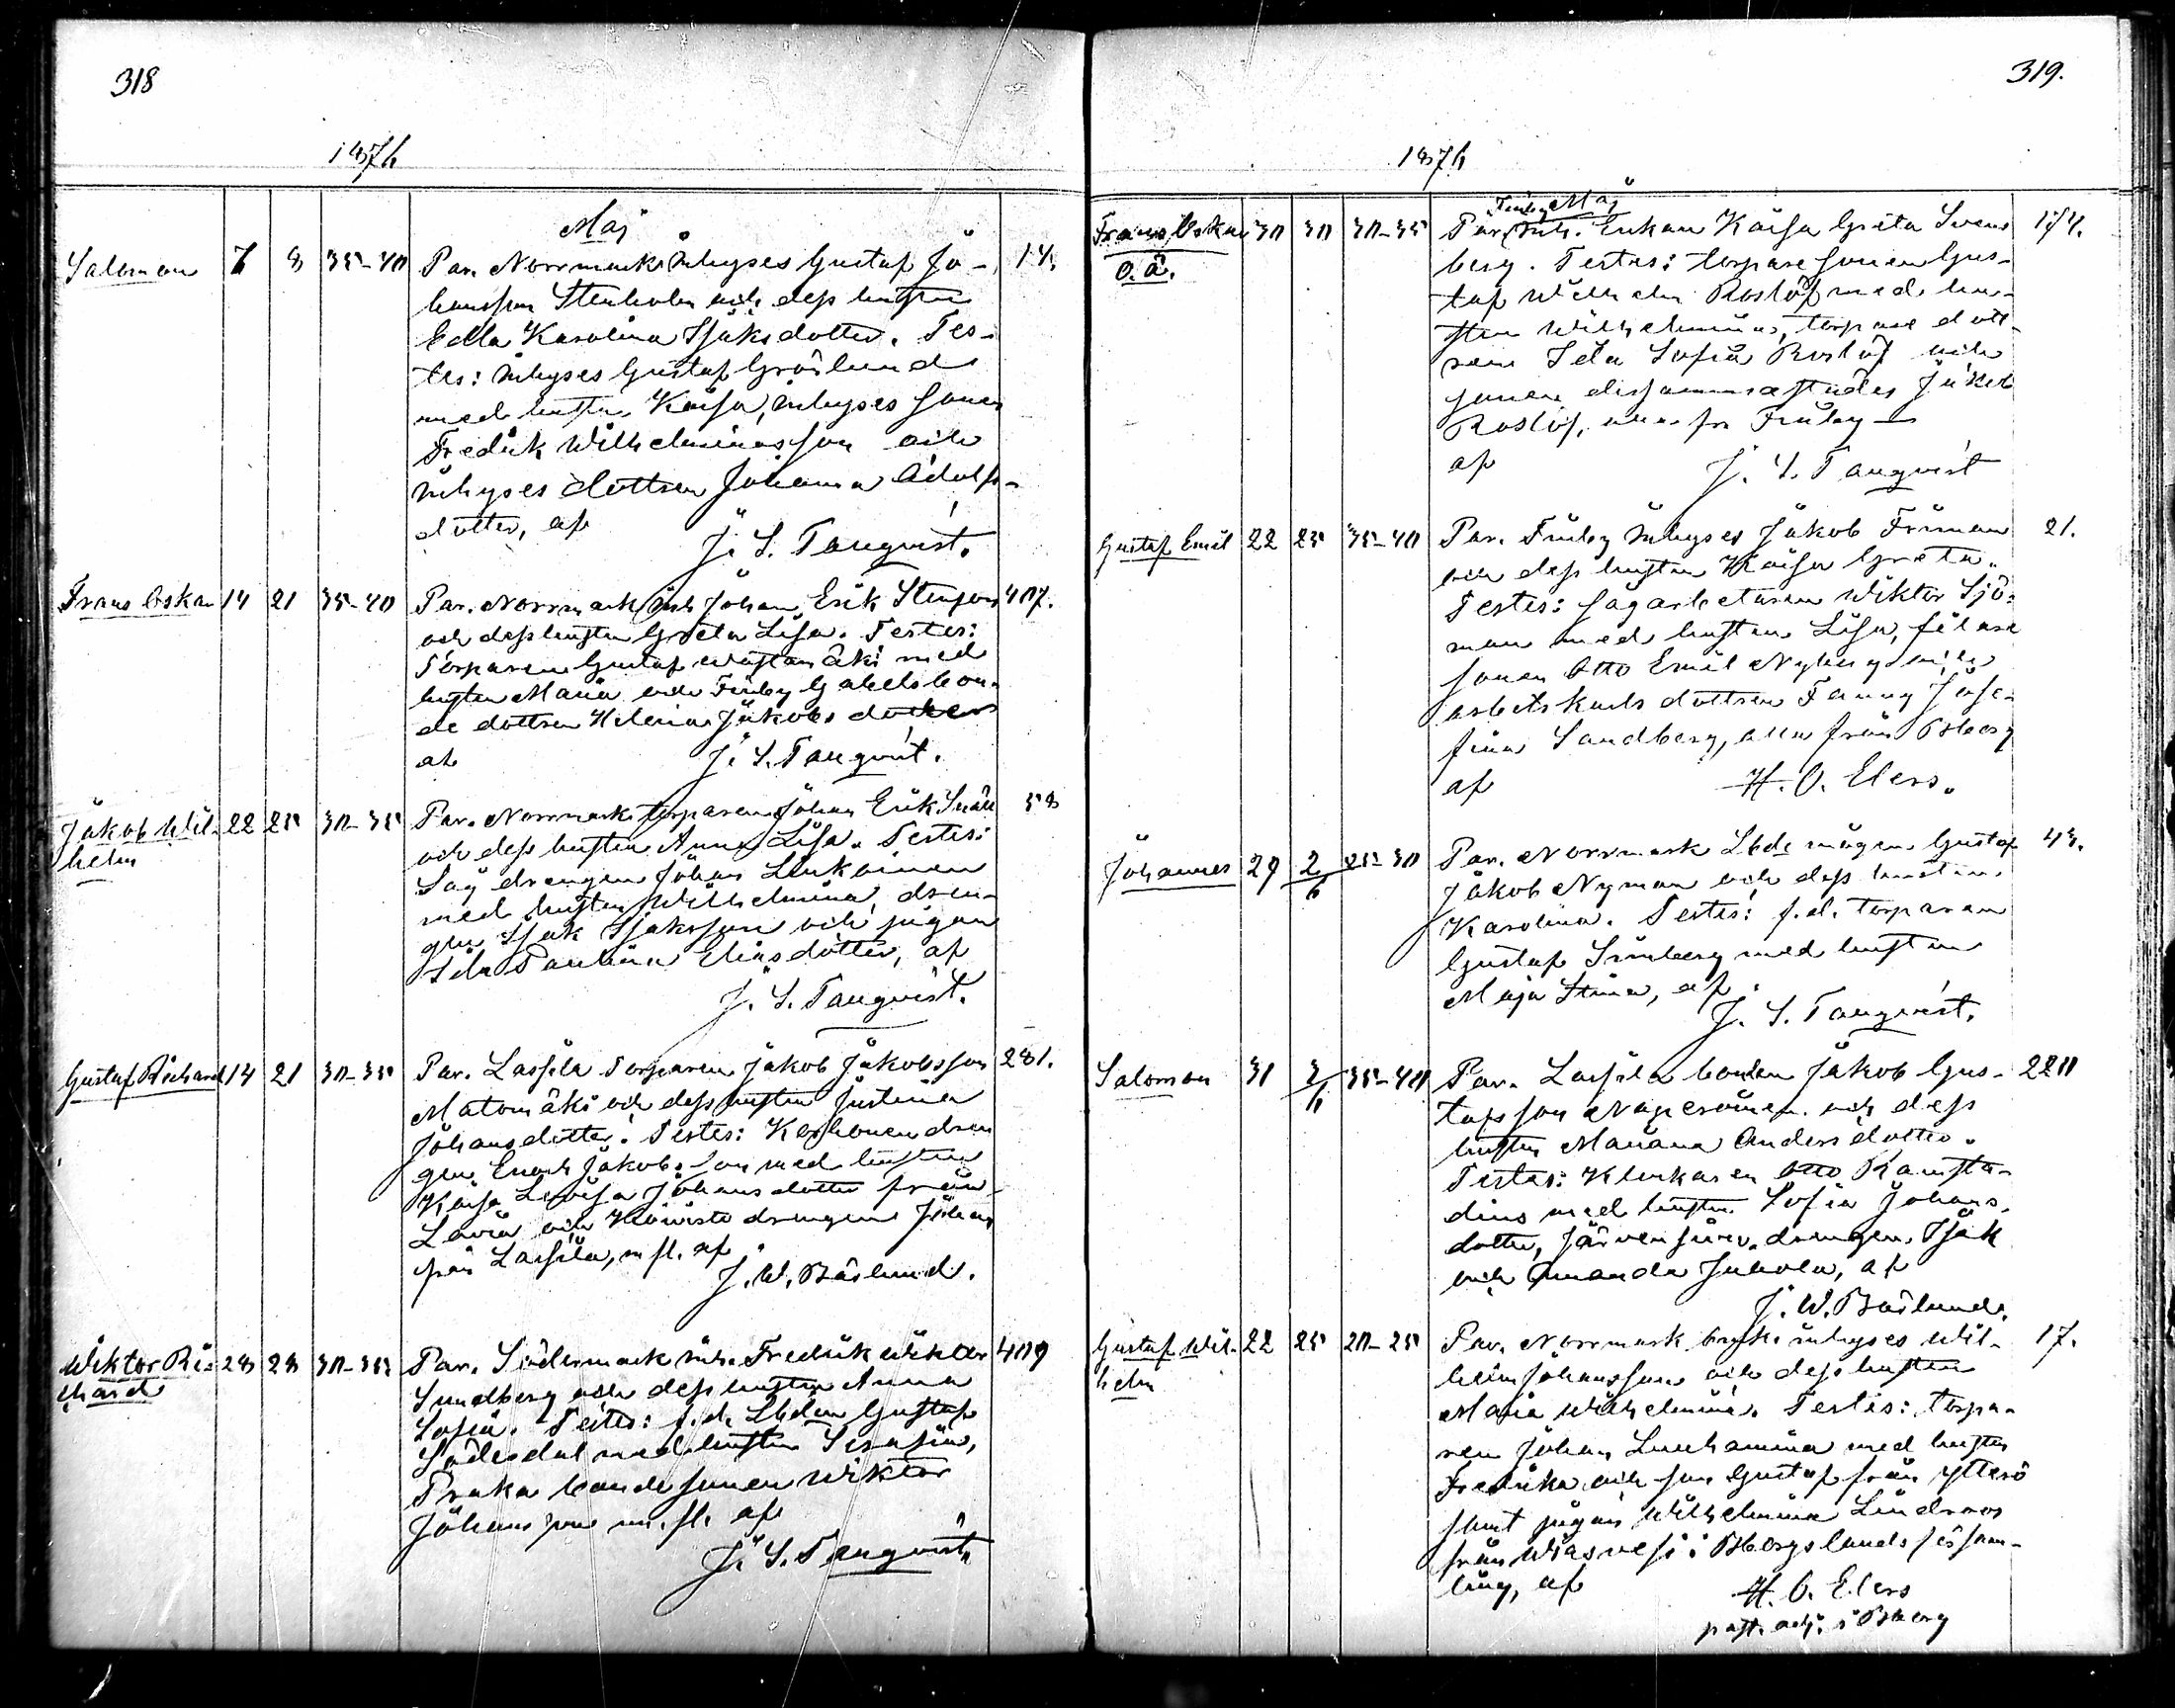 318
1876
Maj
Salomon 7 8 35-40 Par. Norrmark Inhyses Gustaf Jo- 14.
hansson Stenholm och dess hustru
Edla Karolina Isaksdotter. Tes-
tes: Inhyses Gustaf Grönlund
med hustru Kaisa, inhyses sonen
Fredrik Wilhelmsson och
inhyses dottren Johanna Adolfs-
dotter, af
J. S. Tanqvist.
Frans Oskar 14 21 35-40 Par. Norrmark inh. Johan Erik Stenfors 407.
och dess hustru Greta Lisa. Testes:
Torparen Gustaf mäki med
hustru Maria och Finby Gabels bon-
de dottren Helena Jakobsdotter
af J. S. Tanqvist.
Jakob Wil- 22 25 30-35 Par. Norrmark torparen Johan Erik Snäll 58
helm och dess hustru Anna Lisa. Testes:
Såg drengen Johan Linkoinen
med hustru Wilhelmina, dren-
gen Isak Isaksson och pigan
Ida Paulina Eliasdotter, af
J. S. Tanqvist.
Gustaf Richard 14 21 30-35 Par. Lassila Torparen Jakob Jakobsson 281.
Matomäki och dess hustru Justina
Johansdotter. Testes: Korhonen dren
gen Enoch Jakobsson med hustru
Kaisa Lovisa Johansdotter från
Lavia och Koivisto drengen Johan
från Lassila, m fl. af
J. W. Båslund.
Wiktor Ri- 28 28 30-35 Par. Södermark inh. Fredrik Wiktor 409
chard Sundberg och dess hustru Anna
Sofia. Testes: f.d. Lbdn Gustaf
Söderdal med hustru Serafia,
bonde sonen Wiktor
Johansson m. fl. af
J. S. Tanqvist
319.
1876
Maj
Frans Oskar 30 30 30-35 Par. Finby Inh. Enkan Kaisa Greta Svens 174.
o.ä. berg. Testes: torpare sonen Gus-
taf Wilhelm Roslöf med hu-
stru Wilhelmina, torpare dott-
ren Ida Sofia Roslöf och
sonen dersammastädes Jakob
Roslöf, alla fr Finby
af J. S. Tanqvist
Gustaf Emil 22 25 35-40 Par. Finby Inhyses Jakob Friman 21.
och dess hustru Kaisa Greta.
Testes: sågarbetaren Wiktor Sjö-
man med hustru Lisa, filare
sonen Otto Emil Nyberg och
arbetskarls dottren Fanny Jose-
fina Sandberg, alla från Bberg
af H. O. Elers.
Johannes 29 2/6 25-30 Par. Norrmark Lbds mågen Gustaf 43.
Jakob Nyman och dess hustru
Karolina. Testes: f.d. torparen
Gustaf Grönberg med hustru
Maja Stina, af
J. S. Tanqvist.
Salomon 31 35-40 Par. Lassila bonden Jakob Gus- 220
tafsson och dess
hustru Mariana Andersdotter.
Testes: Klockaren Otto Ramsta-
dius med hustru Sofia Johans-
dotter, drengen Isak
och Amanda Juhola, af
J. W. Båslund.
Gustaf Wil- 22 25 20-25 Par. Norrmark bruks inhyses Wil- 17.
helm helm Johansson och dess hustru
Maria Wilhelmina. Testes: torpa-
ren Johan med hustru
Fredrika och son Gustaf från Ytterö
samt pigan Wilhelmina Lindroos
från i Bborgs lands försam-
ling, af H. O. Elers
past. adj. i Bberg